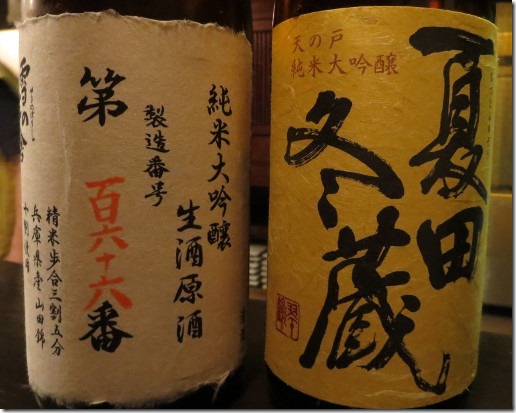 純米大吟醸
生酒原酒
製造番号
第百六十六番
精米歩合三割五分
兵庫県産山田錦
天の戸
純米大吟醸
夏田
冬蔵